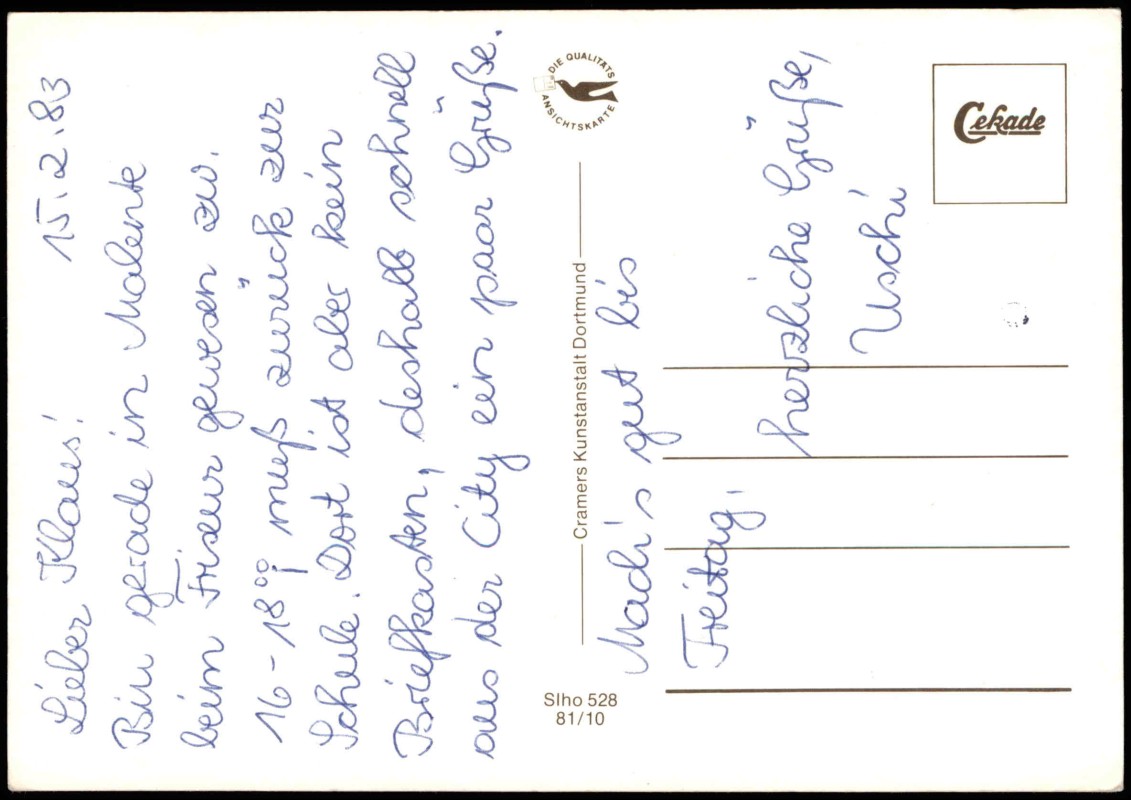 15.2.83
Lieber Klaus!
Bin gerade in Malente
beim Friseur gewesen zw.
16-18⁰⁰, muß zurück zur
Schule. Dort ist aber kein
Briefkasten, deshalb schnell
aus der City ein paar Grüße.
Mach's gut bis
Freitag,
herzliche Grüße,
Uschi
DIE QUALITÄTS
ANSICHTSKARTE
Cramers Kunstanstalt Dortmund
Slho 528
81/10
Cekade